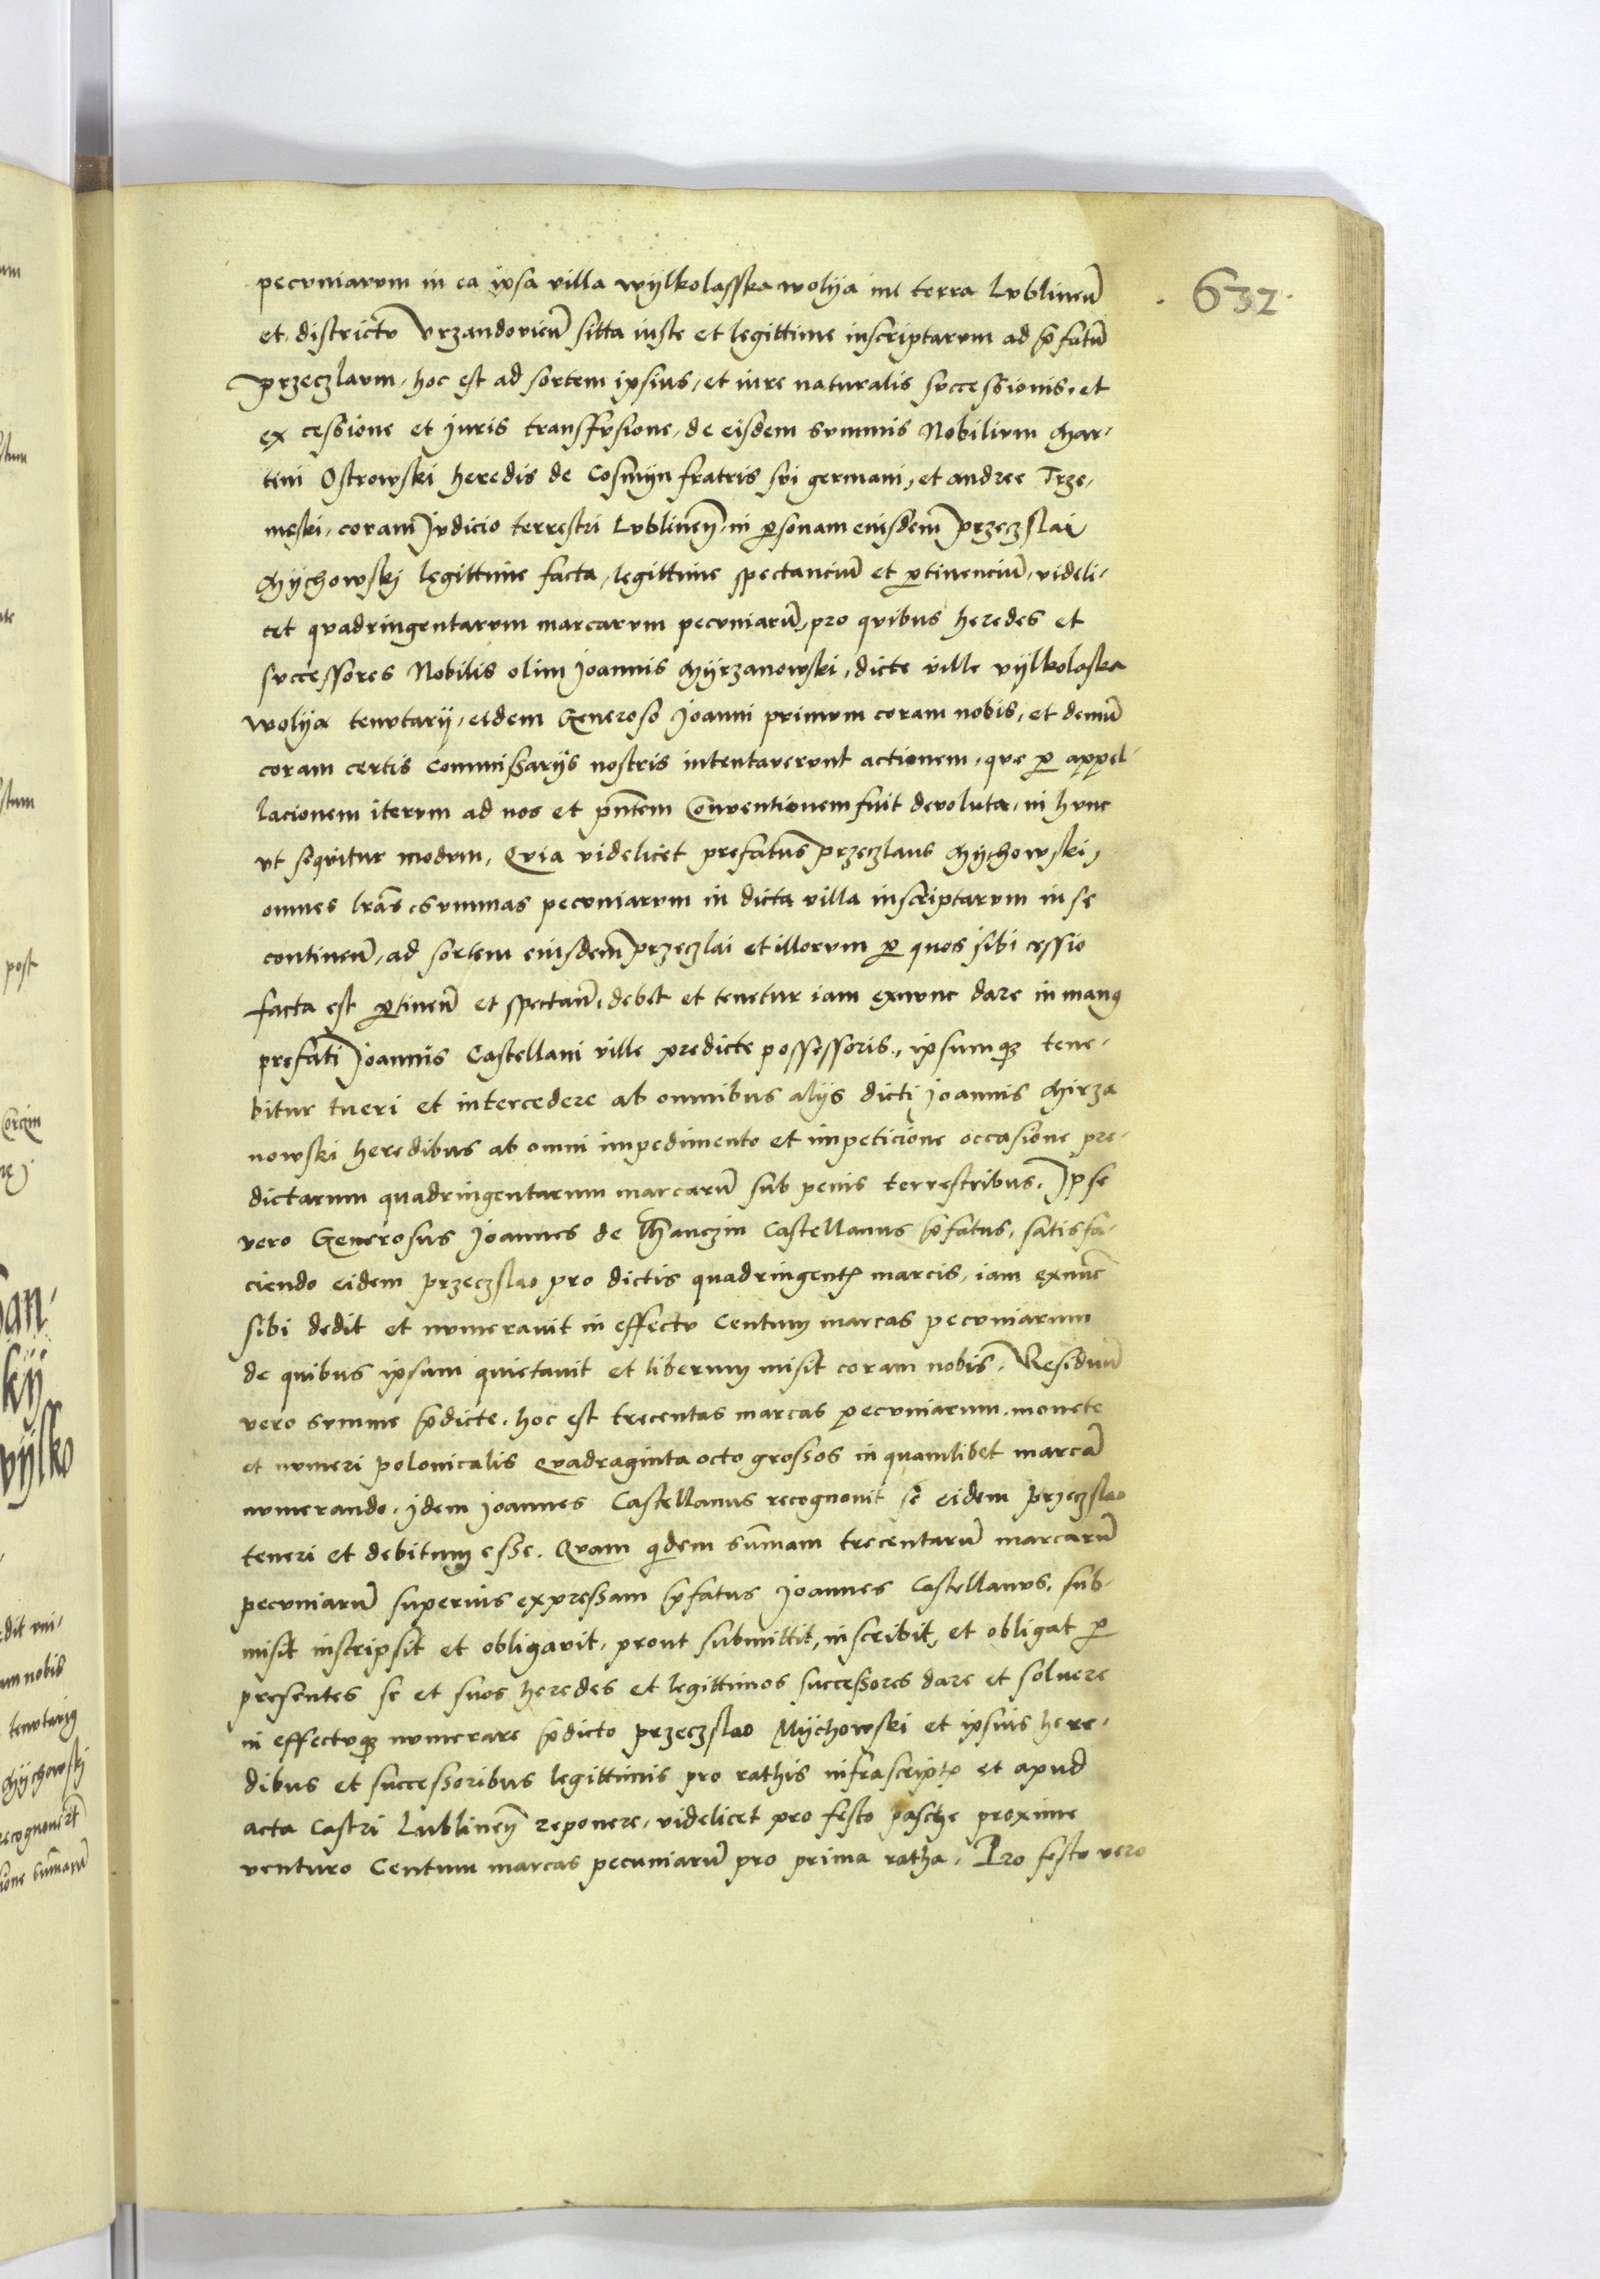 632
pecuniarum in ea ipsa villa wylkolasska wolya in terra Lublineñ
et districtu Vrzandovieñ sitta iuste et legittime inscriptarum ad p̃fatũ
przeczlaum, hoc est ad sortem ipsius, et iure naturalis successionis, et
ex cessione et Juris transffusione, de eisdem summis Nobilium Mar-
tini Ostrowski heredis de Cosmyn fratris sui germani, et andree Trze-
meski, coram Judicio terrestri Lublineñ, in p̱sonam eiusdem przeczslai
Mychowskj legittime facta, legittime spectanciũ et p̱tinenciũ, videli-
cet quadringentarum marcarum pecuniarũ, pro quibus heredes et
successores Nobilis olim Joannis Myrzanowski, dicte ville vylkolaska
wolya tenutarij, eidem Generoso Joanni primum coram nobis, et demũ
coram certis Commissarijs nostris intentaverunt actionem, que p̱ appel-
lacionem iterum ad nos et pñtem Conventionem fuit devoluta, in hunc
ut sequitur modum, Quia videlicet prefatus przeczlaus Mychowski,
omnes lr̃as summas pecuniarum in dicta villa inscriptarum in se
contineñ, ad sortem eiusdem przeczlai et illorum p̱ quos sibi cessio
facta est p̱tineñ et spectañ, debet et tenetur iam exnunc dare in manꝯ
prefati Joannis Castellani ville predicte possessoris, ipsumqꝫ tene-
bitur tueri et intercedere ab omnibus alijs dicti Joannis Mirza
nowski heredibus ab omni impedimento et impeticione occasione pre-
dictarum quadringentarum marcarũ sub penis terrestribus. Ipse
vero Generosus Joannes de Thanczin Castellanus p̃fatus, satisfa-
ciendo eidem przeczslao pro dictis quadringentꝭ marcis, iam exnũc
sibi dedit et numeravit in effectu Centum marcas pecuniarum
de quibus ipsum quietavit et liberum misit coram nobis. Residuũ
vero summe p̃dicte, hoc est trecentas marcas pecuniarum, monete
et numeri polonicalis Quadraginta octo grossos in quamlibet marcã
numerando, Jdem Joannes Castellanus recognovit se eidem przeczslao
teneri et debitum esse. Quam q̇dem sum̃am trecentarũ marcarũ
pecuniarũ superius expressam p̃fatus Joannes Castellanus, sub-
misit inscripsit et obligavit, prout submittit, inscribit, et obligat p̱
presentes se et suos heredes et legittimos successores dare et soluere
in effectuqꝫ numerare p̃dicto przeczslao Mychowski et ipsius here-
dibus et successoribus legittimis pro rathis infrascriptꝭ et apud
acta Castri Lublineñ reponere, videlicet pro festo pasche proxime
venturo Centum marcas pecuniarũ pro prima ratha. Pro festo vero